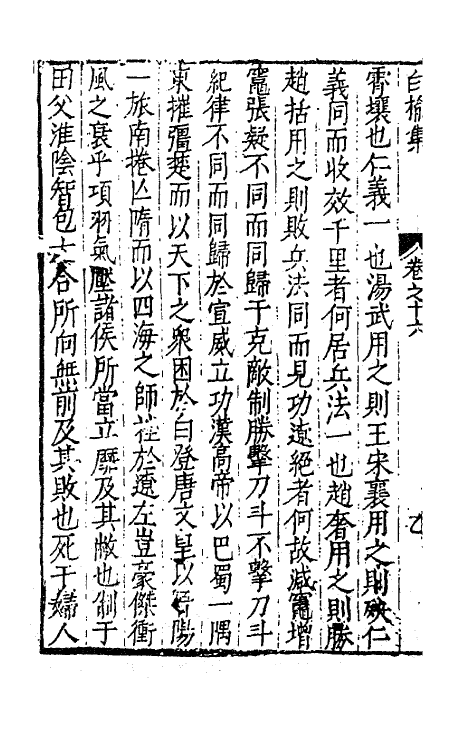 白榆集 卷之十六
霄壤也仁義一也湯武用之則王宋襄用之則殃仁
義同而收效千里者何居兵法一也趙奢用之則勝
趙括用之則敗兵法同而見功遼絕者何故減竈增
竈張疑不同而同歸于克敵制勝擊刀斗不擊刀斗
紀律不同而同歸於宣威立功漢高帝以巴蜀一隅
東摧彊楚而以天下之衆困於白登唐文皇以晉陽
一旅南捲亡隋而以四海之師挫於遼左豈豪傑衝
風之衰乎項羽氣壓諸侯所當立靡及其敝也制于
田父淮陰智包六合所向無前及其敗也死于婦人